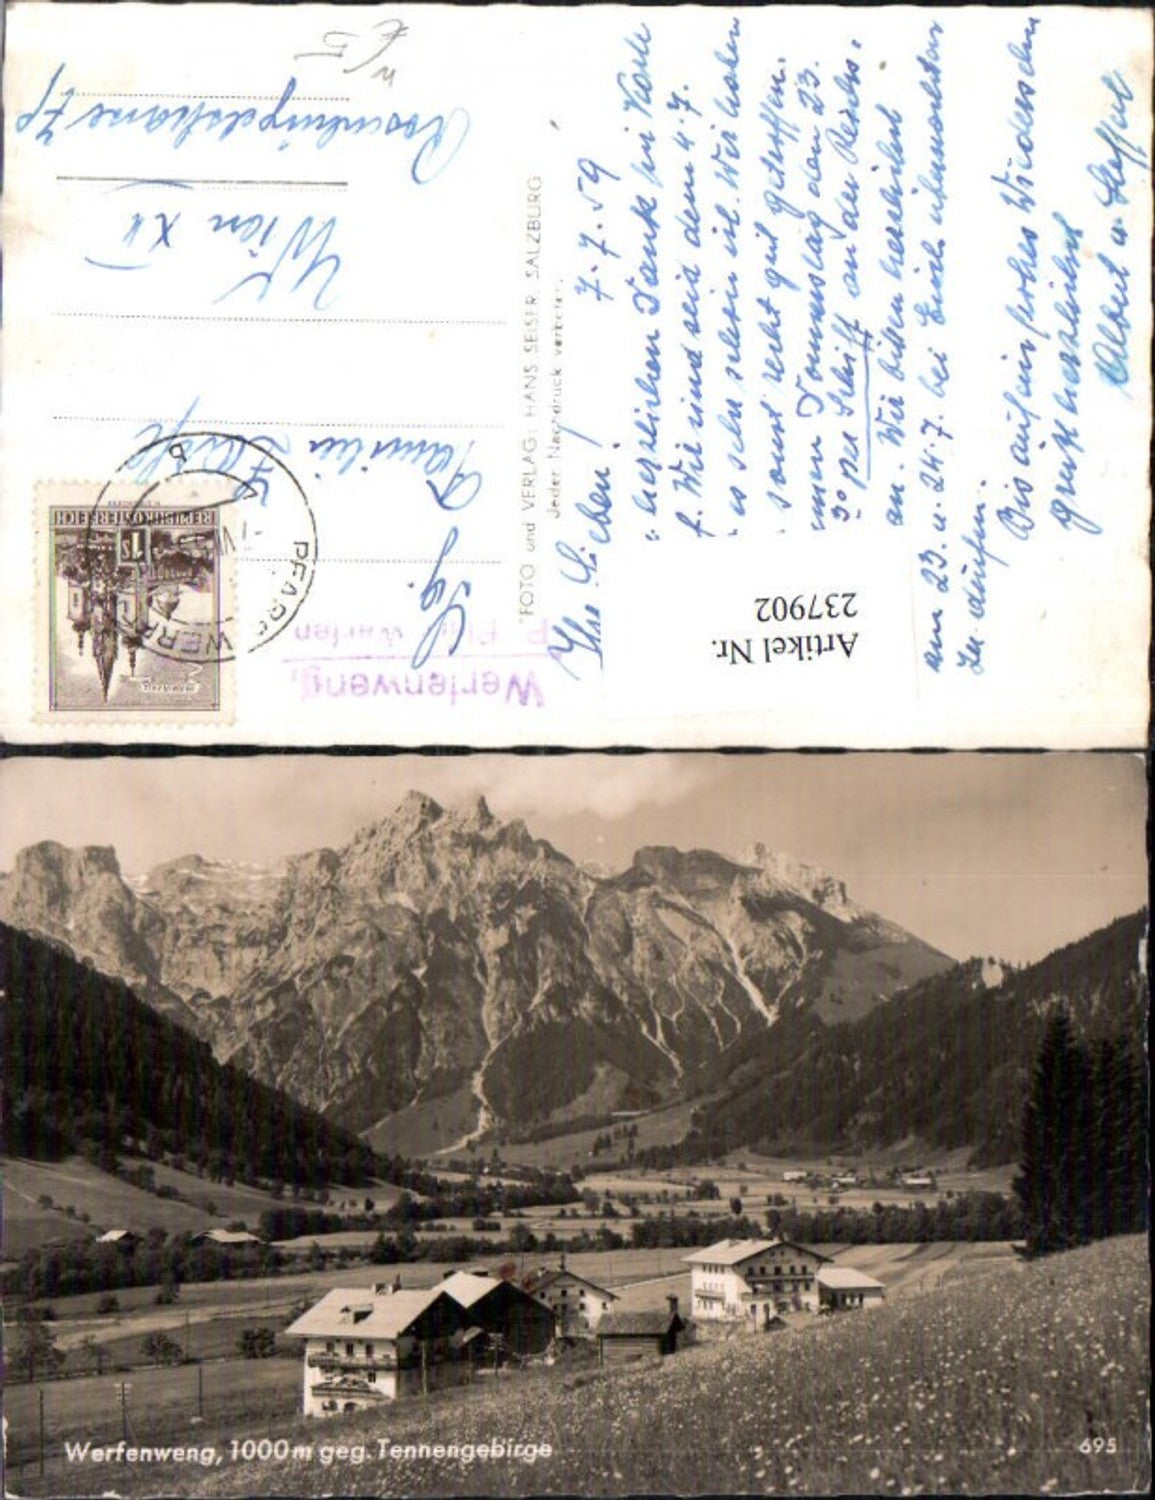 7. 7. 59
Ihr Lieben!
herzlichen Dank für Karte
Wir sind seit dem 4. 7.
es sehr schön ist. Wir haben
sonst recht gut getroffen.
Donnerstag den 23.
per Schiff an der Reichs-
an. Wir bitten herzlichst
am 23. u. 24. 7. bei Euch übernachten
zu dürfen.
Bis auf ein frohes Wiedersehen
grüßt herzlichst
Albert u.
Artikel Nr.
237902
FOTO und VERLAG: HANS SEISER SALZBURG
Jeder Nachdruck verboten.
Werfenweng,
P. Pfarr Werfen
REPUBLIK ÖSTERREICH
1 S
PFARR WERFEN
Familie
Wien XII
Werfenweng, 1000 m geg. Tennengebirge
695